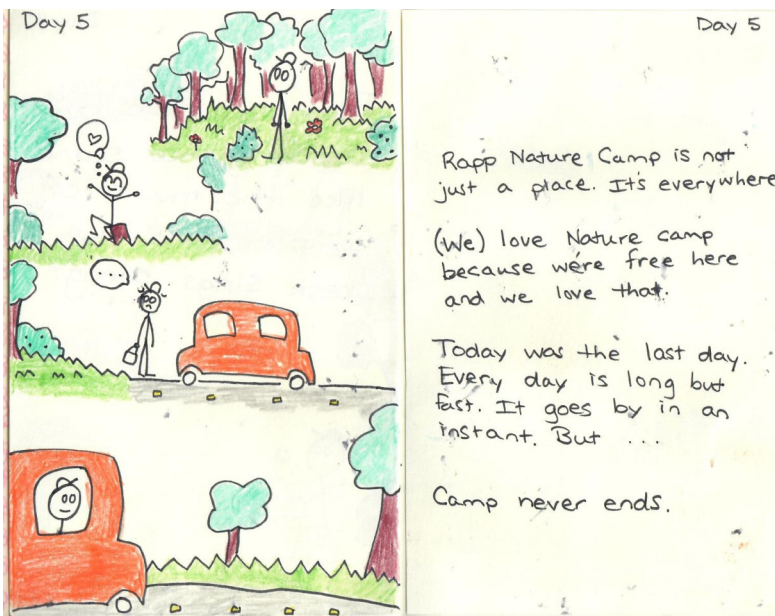 Day 5
...
Day 5
Rapp Nature Camp is not
just a place. It's everywhere
(We) love Nature camp
because we're free here
and we love that.
Today was the last day.
Every day is long but
fast. It goes by in an
instant. But ...
Camp never ends.